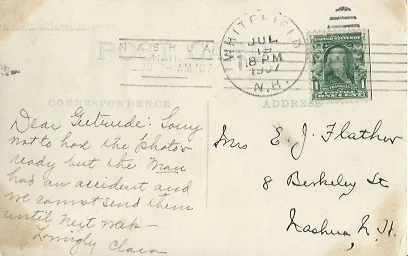 NASHUA
N.H.
AM '07
WHITEFIELD
JUL
19
8 PM
1907
N.H.
POST CARD
CORRESPONDENCE
ADDRESS
Dear Gertrude: Sorry
not to have the photos
ready but the man
had an accident and
we cannot send them
until next week –
Lovingly Clara
Mrs E. J. Flather
8 Berkeley St
Nashua N.H.